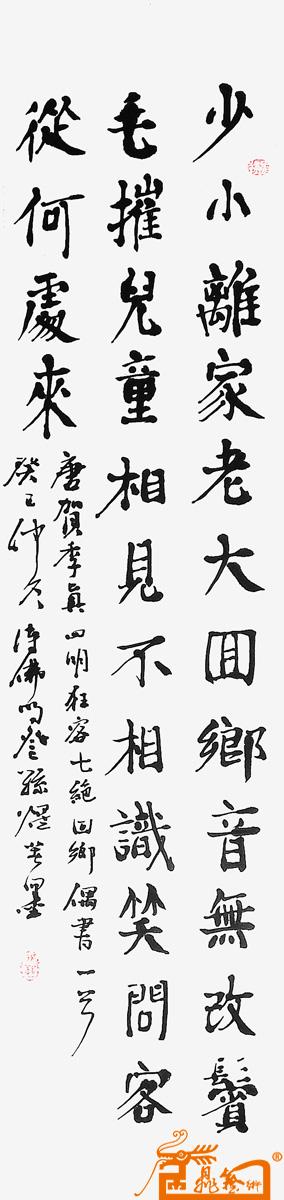 少小離家老大回鄉音無改鬢
毛摧兒童相見不相識笑問客
從何處來
唐賀季真四明狂客七絕回鄉偶書一首
癸巳仲冬